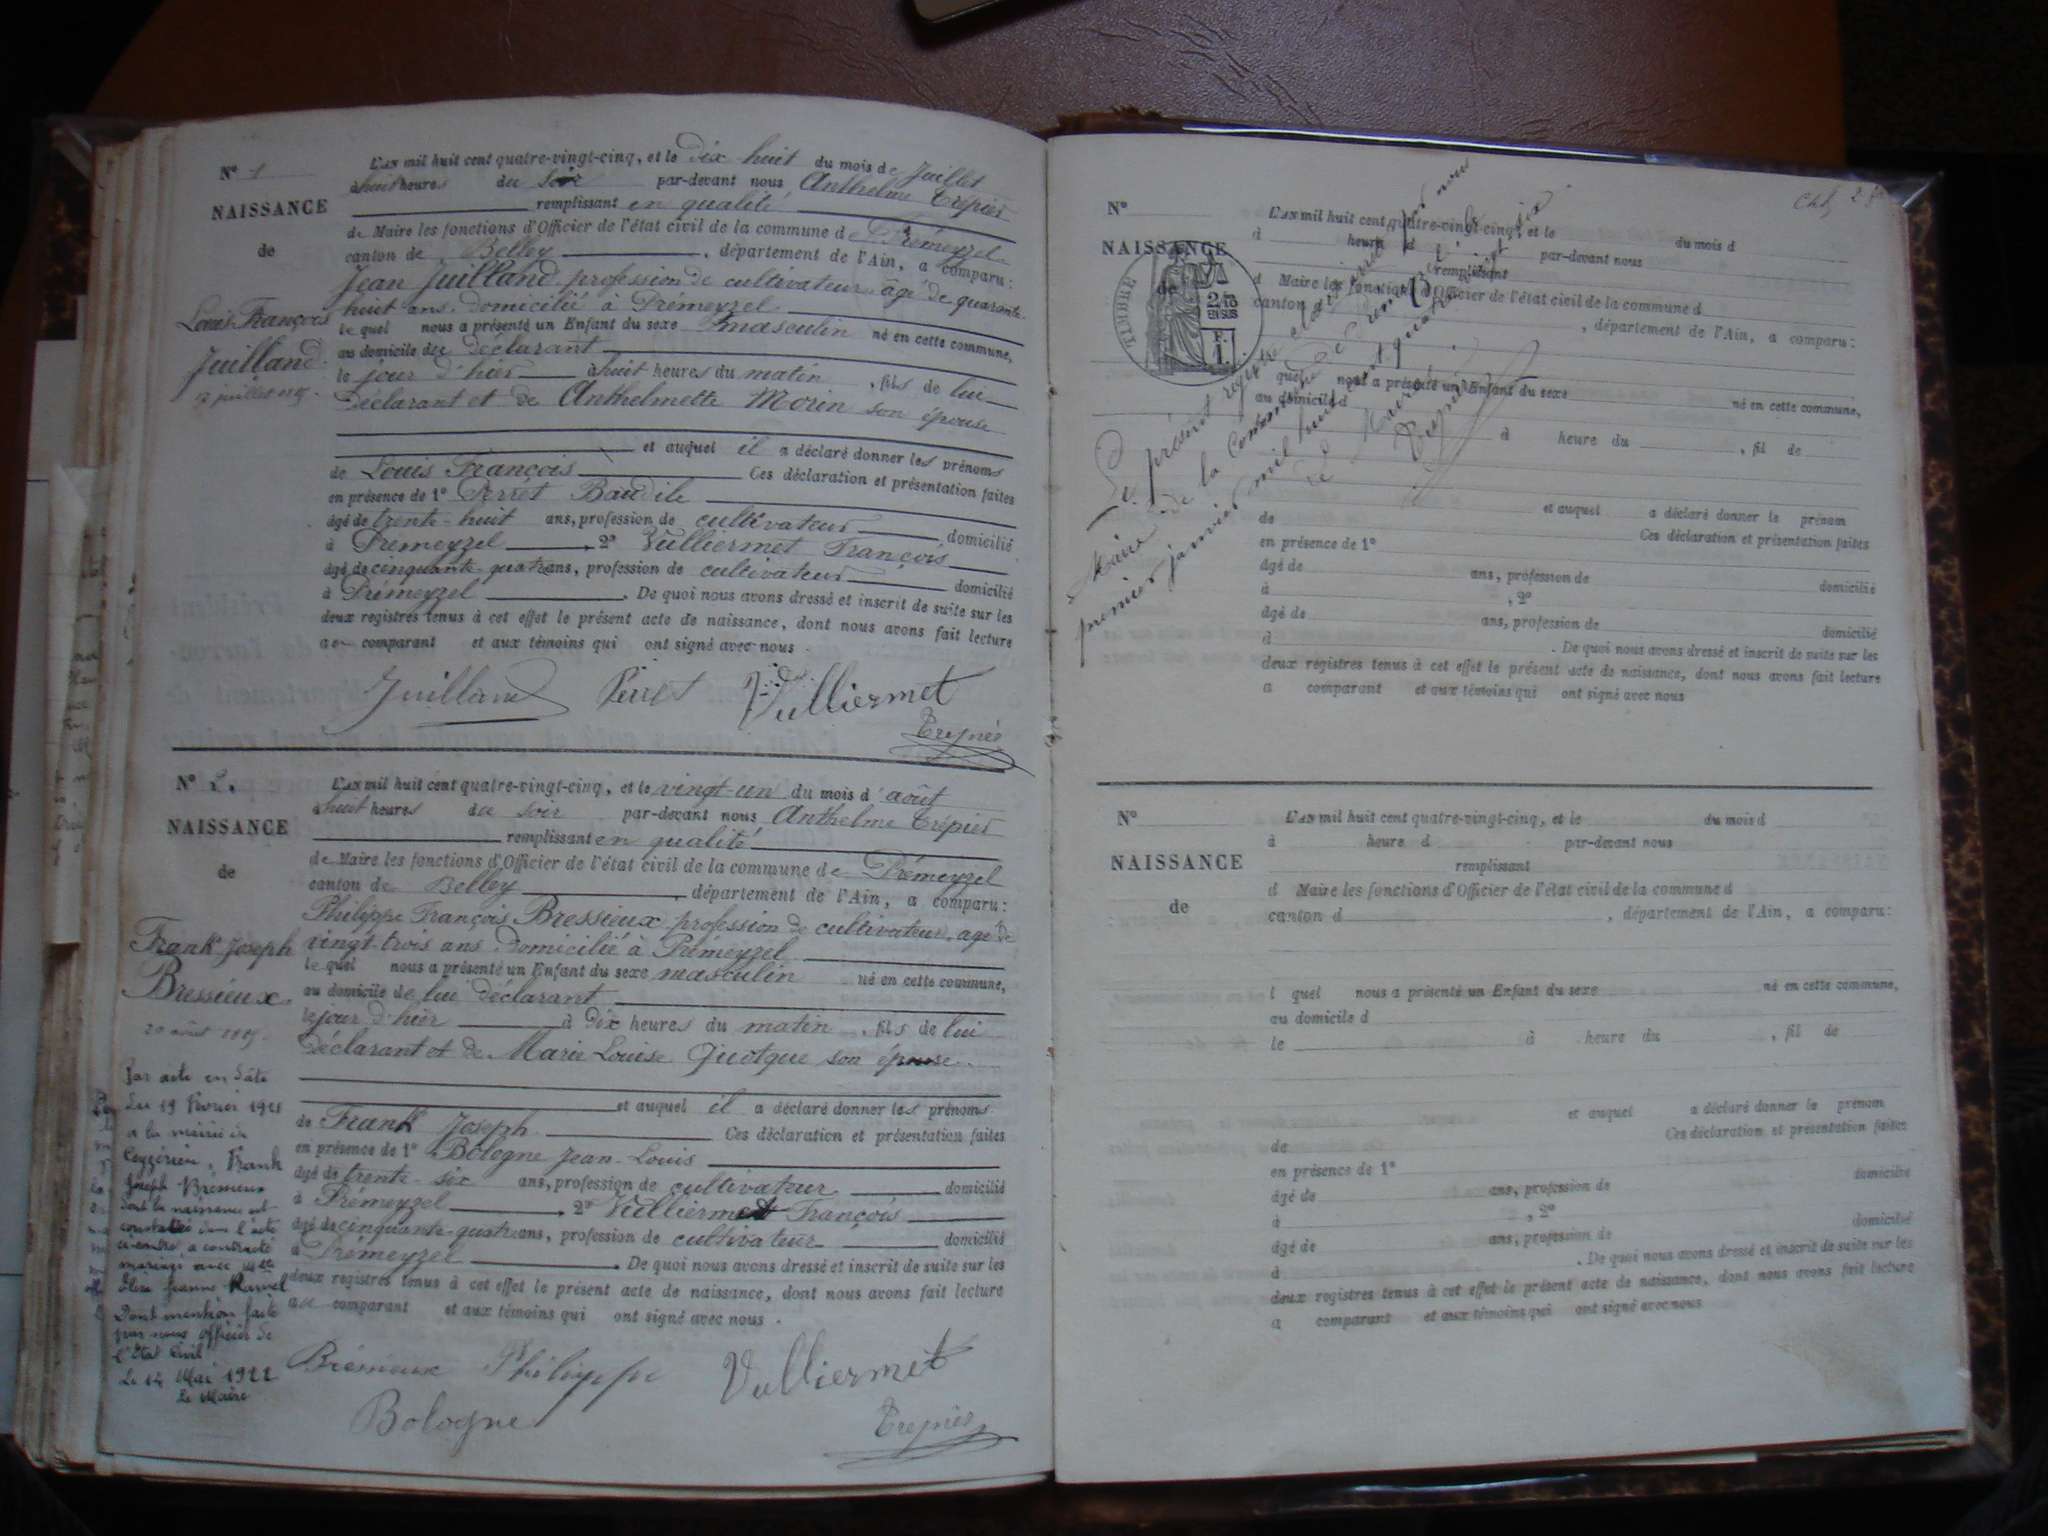 N° 1
NAISSANCE
de
Louis François
Juilland
17 juillet 1885.
L'AN mil huit cent quatre-vingt-cinq, et le dix huit du mois de Juillet
à huit heures du soir par-devant nous Anthelme Trépier
remplissant en qualité
de Maire les fonctions d'Officier de l'état civil de la commune de Prémeyzel
canton de Belley, département de l'Ain, a comparu:
Jean Juilland profession de cultivateur âgé de quarante
huit ans domicilié à Prémeyzel
le quel nous a présenté un Enfant du sexe masculin né en cette commune,
au domicile du déclarant
le jour d'hier à huit heures du matin, fils de lui
déclarant et de Anthelmette Morin son épouse
et auquel il a déclaré donner les prénoms
de Louis François Ces déclaration et présentation faites
en présence de 1° Perret Baudile
âgé de trente-huit ans, profession de cultivateur domicilié
à Prémeyzel, 2° Vulliermet François
âgé de cinquante-quatre ans, profession de cultivateur domicilié
à Prémeyzel. De quoi nous avons dressé et inscrit de suite sur les
deux registres tenus à cet effet le présent acte de naissance, dont nous avons fait lecture
au comparant et aux témoins qui ont signé avec nous.
Juilland Perret Vulliermet
Trépier
N° 2.
NAISSANCE
de
Frank Joseph
Bressieux.
20 août 1885.
Par acte en date
du 19 Février 1921
a la mairie de
Ceyzérieu, Frank
Joseph Brémeux
dont la naissance est
constatée dans l'acte
ci-contre, a contracté
mariage avec Mlle
Elise Jeanne Ramel
Dont mention faite
par nous officier de
l'Etat Civil
Le 14 Mai 1922
Le Maire
L'AN mil huit cent quatre-vingt-cinq, et le vingt-un du mois d'août
à huit heures du soir par-devant nous Anthelme Trépier
remplissant en qualité
de Maire les fonctions d'Officier de l'état civil de la commune de Prémeyzel
canton de Belley, département de l'Ain, a comparu:
Philippe François Bressieux profession de cultivateur, âgé de
vingt-trois ans domicilié à Prémeyzel
le quel nous a présenté un Enfant du sexe masculin né en cette commune,
au domicile de lui déclarant
le jour d'hier à dix heures du matin, fils de lui
déclarant et de Marie Louise Quotque son épouse
et auquel il a déclaré donner les prénoms
de Frank Joseph Ces déclaration et présentation faites
en présence de 1° Bologne Jean-Louis
âgé de trente-six ans, profession de cultivateur domicilié
à Prémeyzel, 2° Vulliermet François
âgé de cinquante-quatre ans, profession de cultivateur domicilié
à Prémeyzel. De quoi nous avons dressé et inscrit de suite sur les
deux registres tenus à cet effet le présent acte de naissance, dont nous avons fait lecture
au comparant et aux témoins qui ont signé avec nous.
Brémeux Philippe Vulliermet
Bologne Trépier
N°
NAISSANCE
de
TIMBRE
2/10
EN SUS
F.
1.
L'AN mil huit cent quatre-vingt-cinq, et le du mois d
à heure d par-devant nous
remplissant
d Maire les fonctions d'Officier de l'état civil de la commune d
canton d, département de l'Ain, a comparu:
quel nous a présenté un Enfant du sexe né en cette commune,
au domicile d
à heure du, fil de
et auquel a déclaré donner le prénom
de Ces déclaration et présentation faites
en présence de 1°
âgé de ans, profession de domicilié
à, 2°
âgé de ans, profession de domicilié
à. De quoi nous avons dressé et inscrit de suite sur les
deux registres tenus à cet effet le présent acte de naissance, dont nous avons fait lecture
a comparant et aux témoins qui ont signé avec nous
Le présent registre clos et arrêté par nous
Maire de la Commune de Prémeyzel le
premier janvier mil huit cent quatre vingt six
Le Maire
Trépier
N°
NAISSANCE
de
L'AN mil huit cent quatre-vingt-cinq, et le du mois d
à heure d par-devant nous
remplissant
d Maire les fonctions d'Officier de l'état civil de la commune d
canton d, département de l'Ain, a comparu:
l quel nous a présenté un Enfant du sexe né en cette commune,
au domicile d
le à heure du, fil de
et auquel a déclaré donner le prénom
de Ces déclaration et présentation faites
en présence de 1°
âgé de ans, profession de domicilié
à, 2°
âgé de ans, profession de domicilié
à. De quoi nous avons dressé et inscrit de suite sur les
deux registres tenus à cet effet le présent acte de naissance, dont nous avons fait lecture
a comparant et aux témoins qui ont signé avec nous